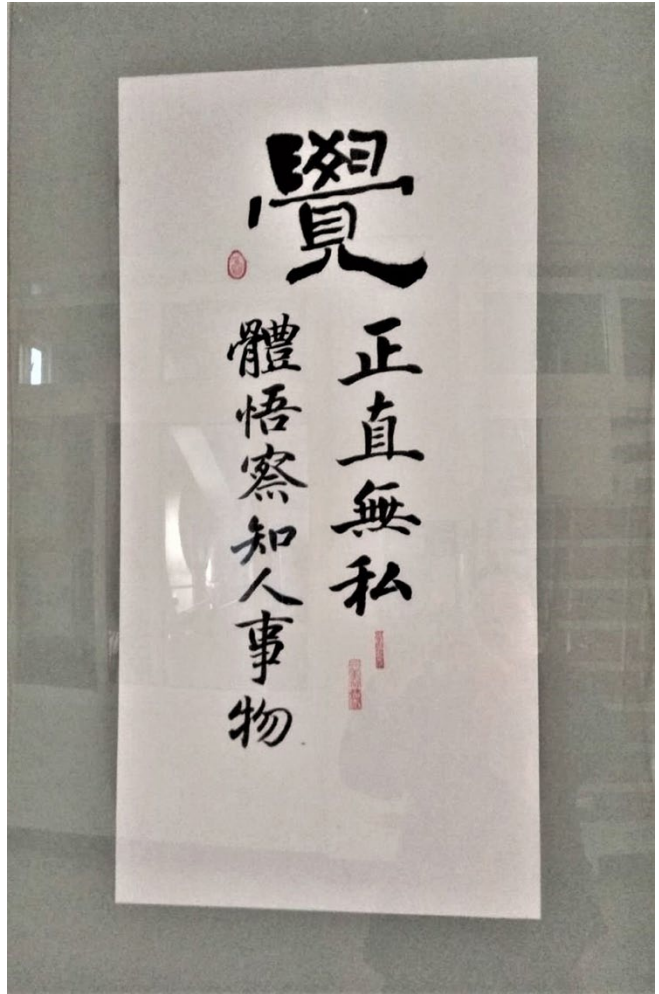 覺
正直無私
體悟察知人事物